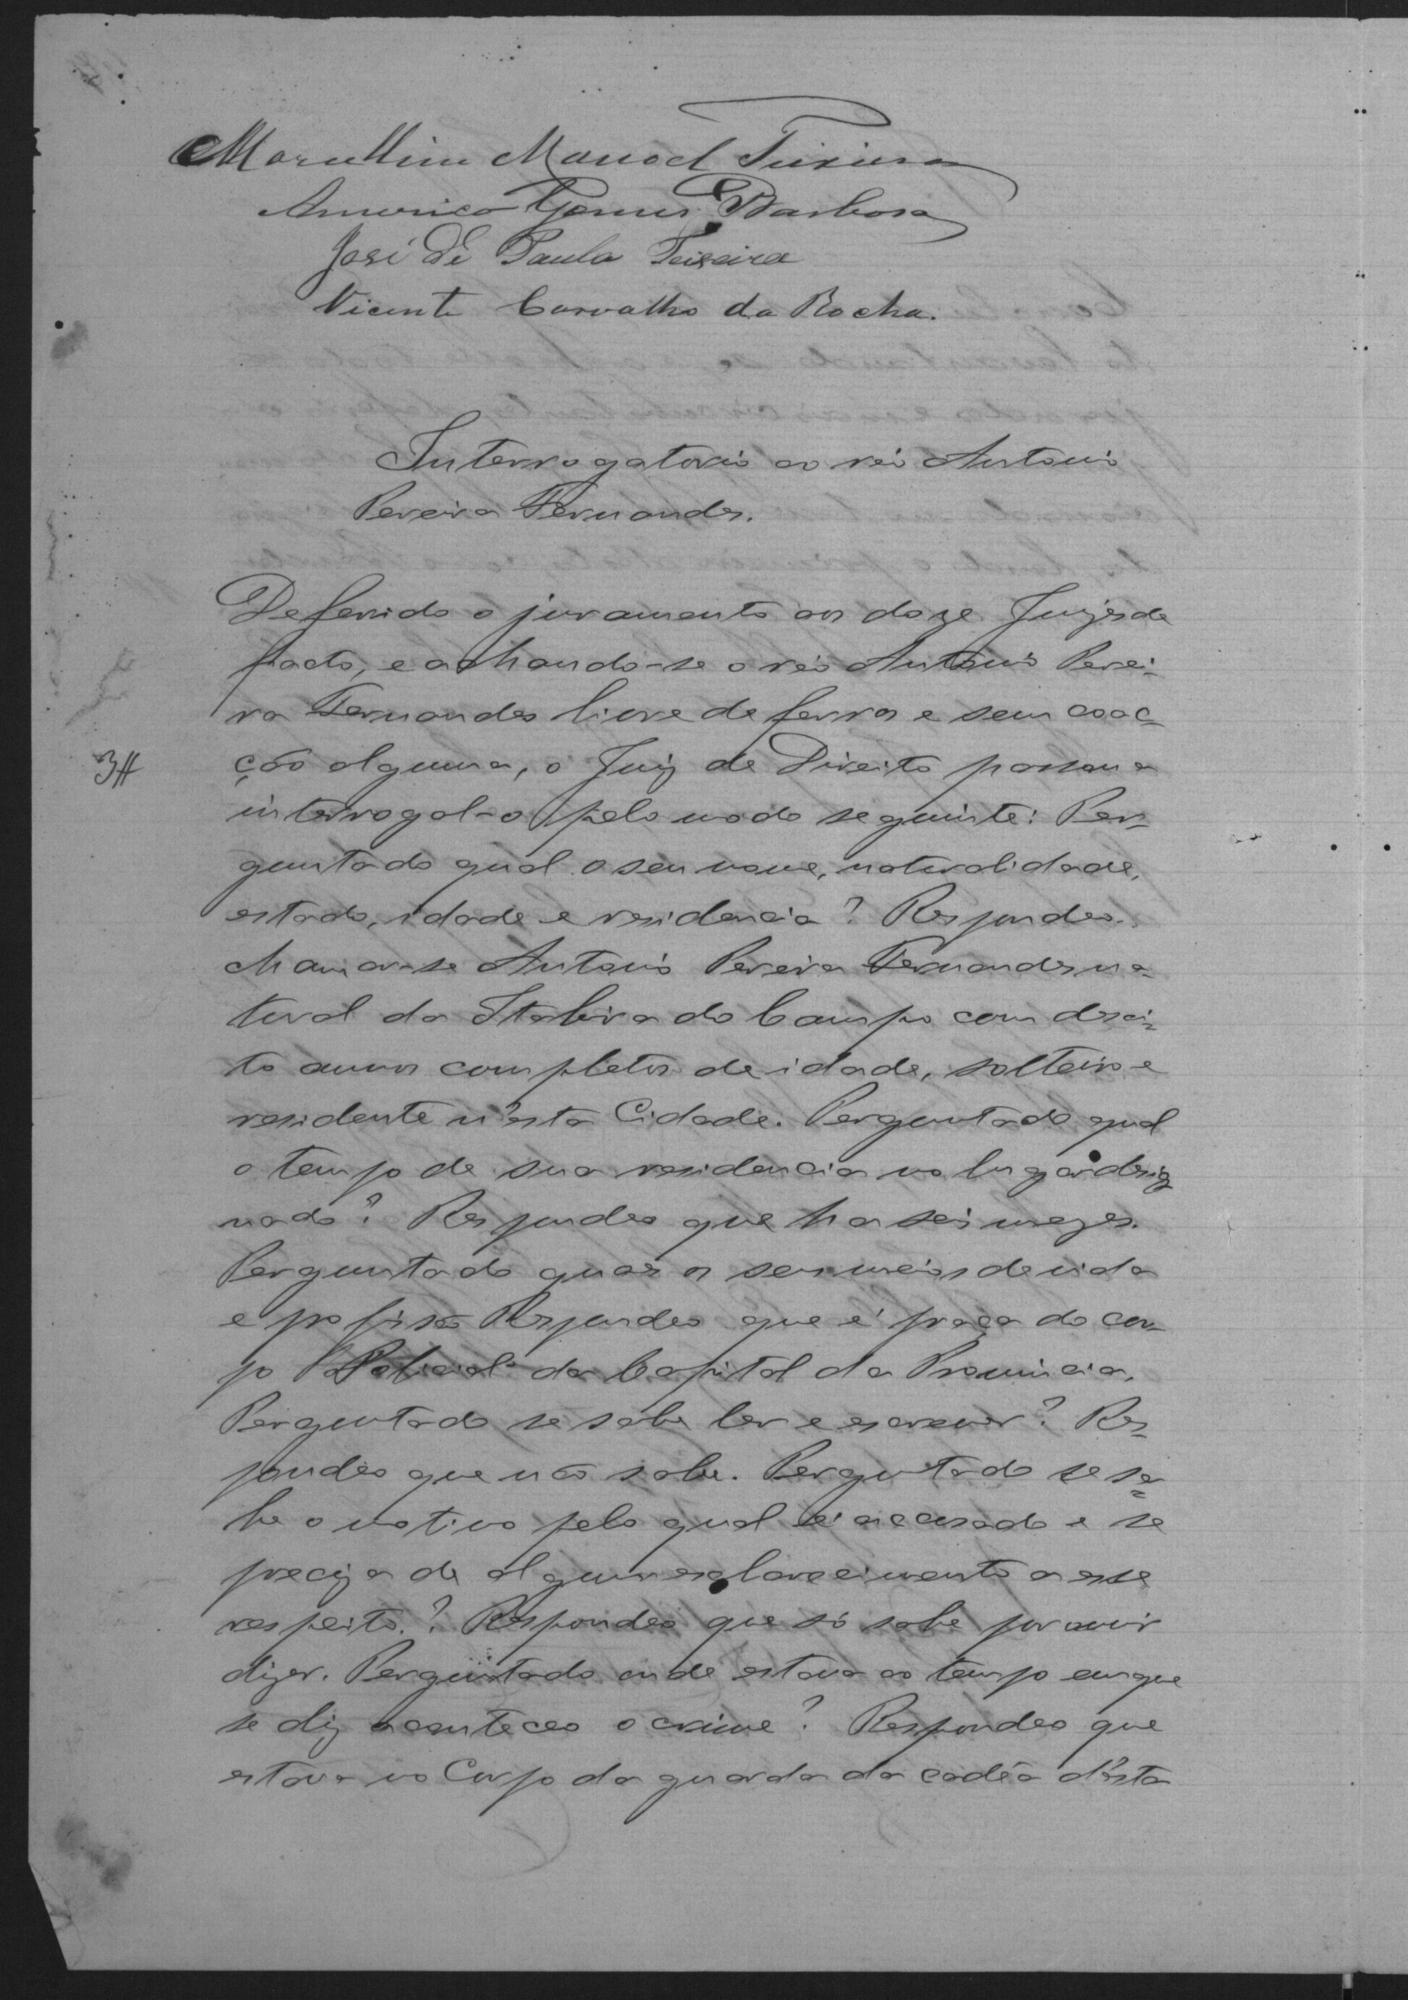 Marcellino Manoel Teixeira
Americo Gomes Barbosa
José de Paula Teixeira
Vicente Carvalho da Rocha.
Interrogatorio ao réo Antonio
Pereira Fernandes.
Deferido o juramento aos doze Juizes de
facto, e achando-se o réo Antonio Perei-
ra Fernandes livre de ferros e sem coac-
ção alguma, o Juiz de Direito passou a
3#
interrogal-o pelo modo seguinte: Per-
guntado qual o seu nome, naturalidade,
estado, idade e residencia? Respondeo
chamar-se Antonio Pereira Fernandes na-
tural da Itabira do Campo com desoi-
to annos completos de idade, solteiro e
residente n'esta Cidade. Perguntado qual
o tempo de sua residencia no lugar desig
nado? Respondeo que ha seis mezes.
Perguntado quaes os seus meios de vida
e profissão Respondeo que é praça do cor-
po Policial da Capital da Provincia.
Perguntado se sabe ler e escrever? Res-
pondeo que não sabe. Perguntado se sa-
be o motivo pelo qual é accusado e se
preciza de algum esclarecimento a esse
respeito.? Respondeo que só sabe por ouvir
dizer. Perguntado onde estava ao tempo em que
se diz aconteceo o crime? Respondeo que
estava no Corpo da guarda da cadêa d'esta